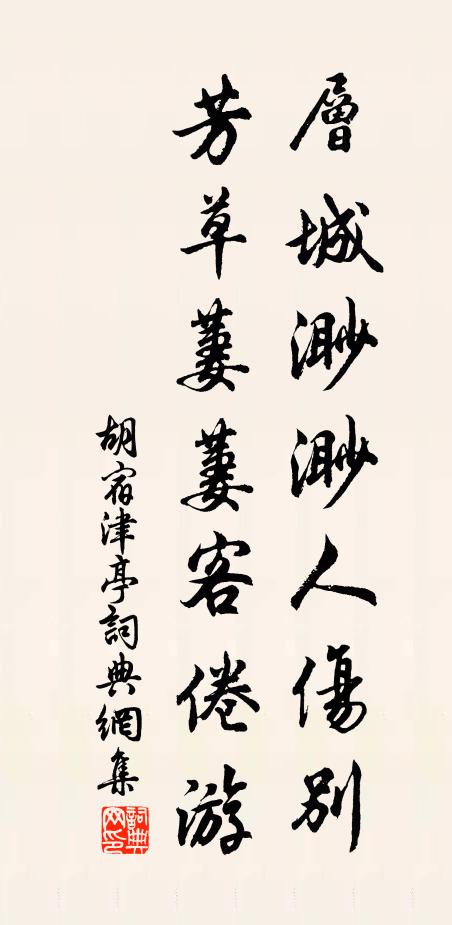 層城渺渺人傷別
芳草萋萋客倦游
胡宿津亭詞典網集
詞典網印